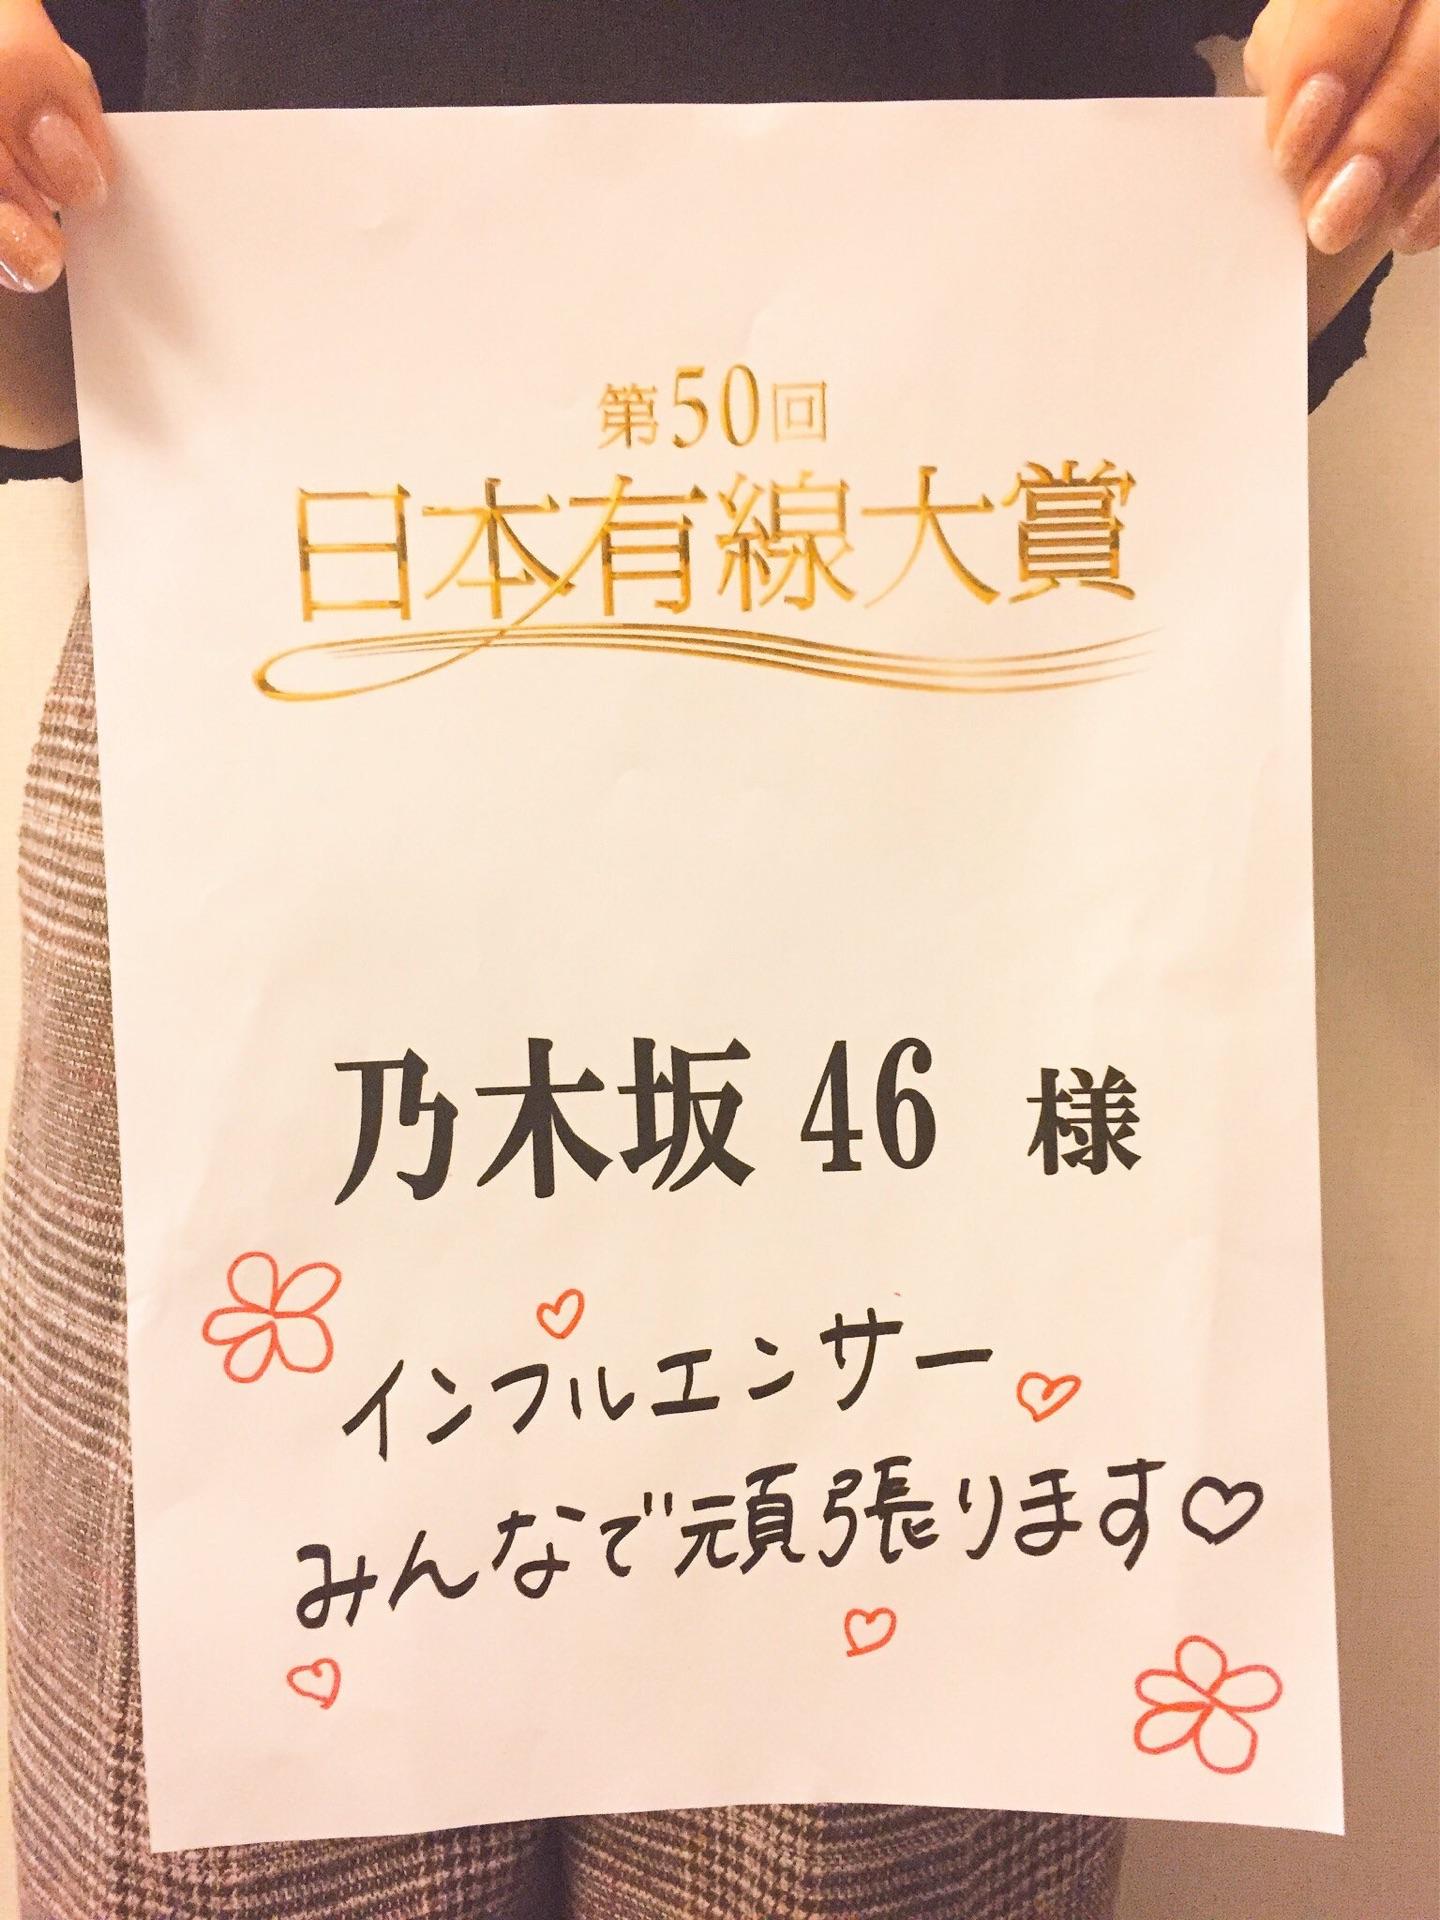 第50回
日本有線大賞
乃木坂46 様
インフルエンサー
みんなで頑張ります♡